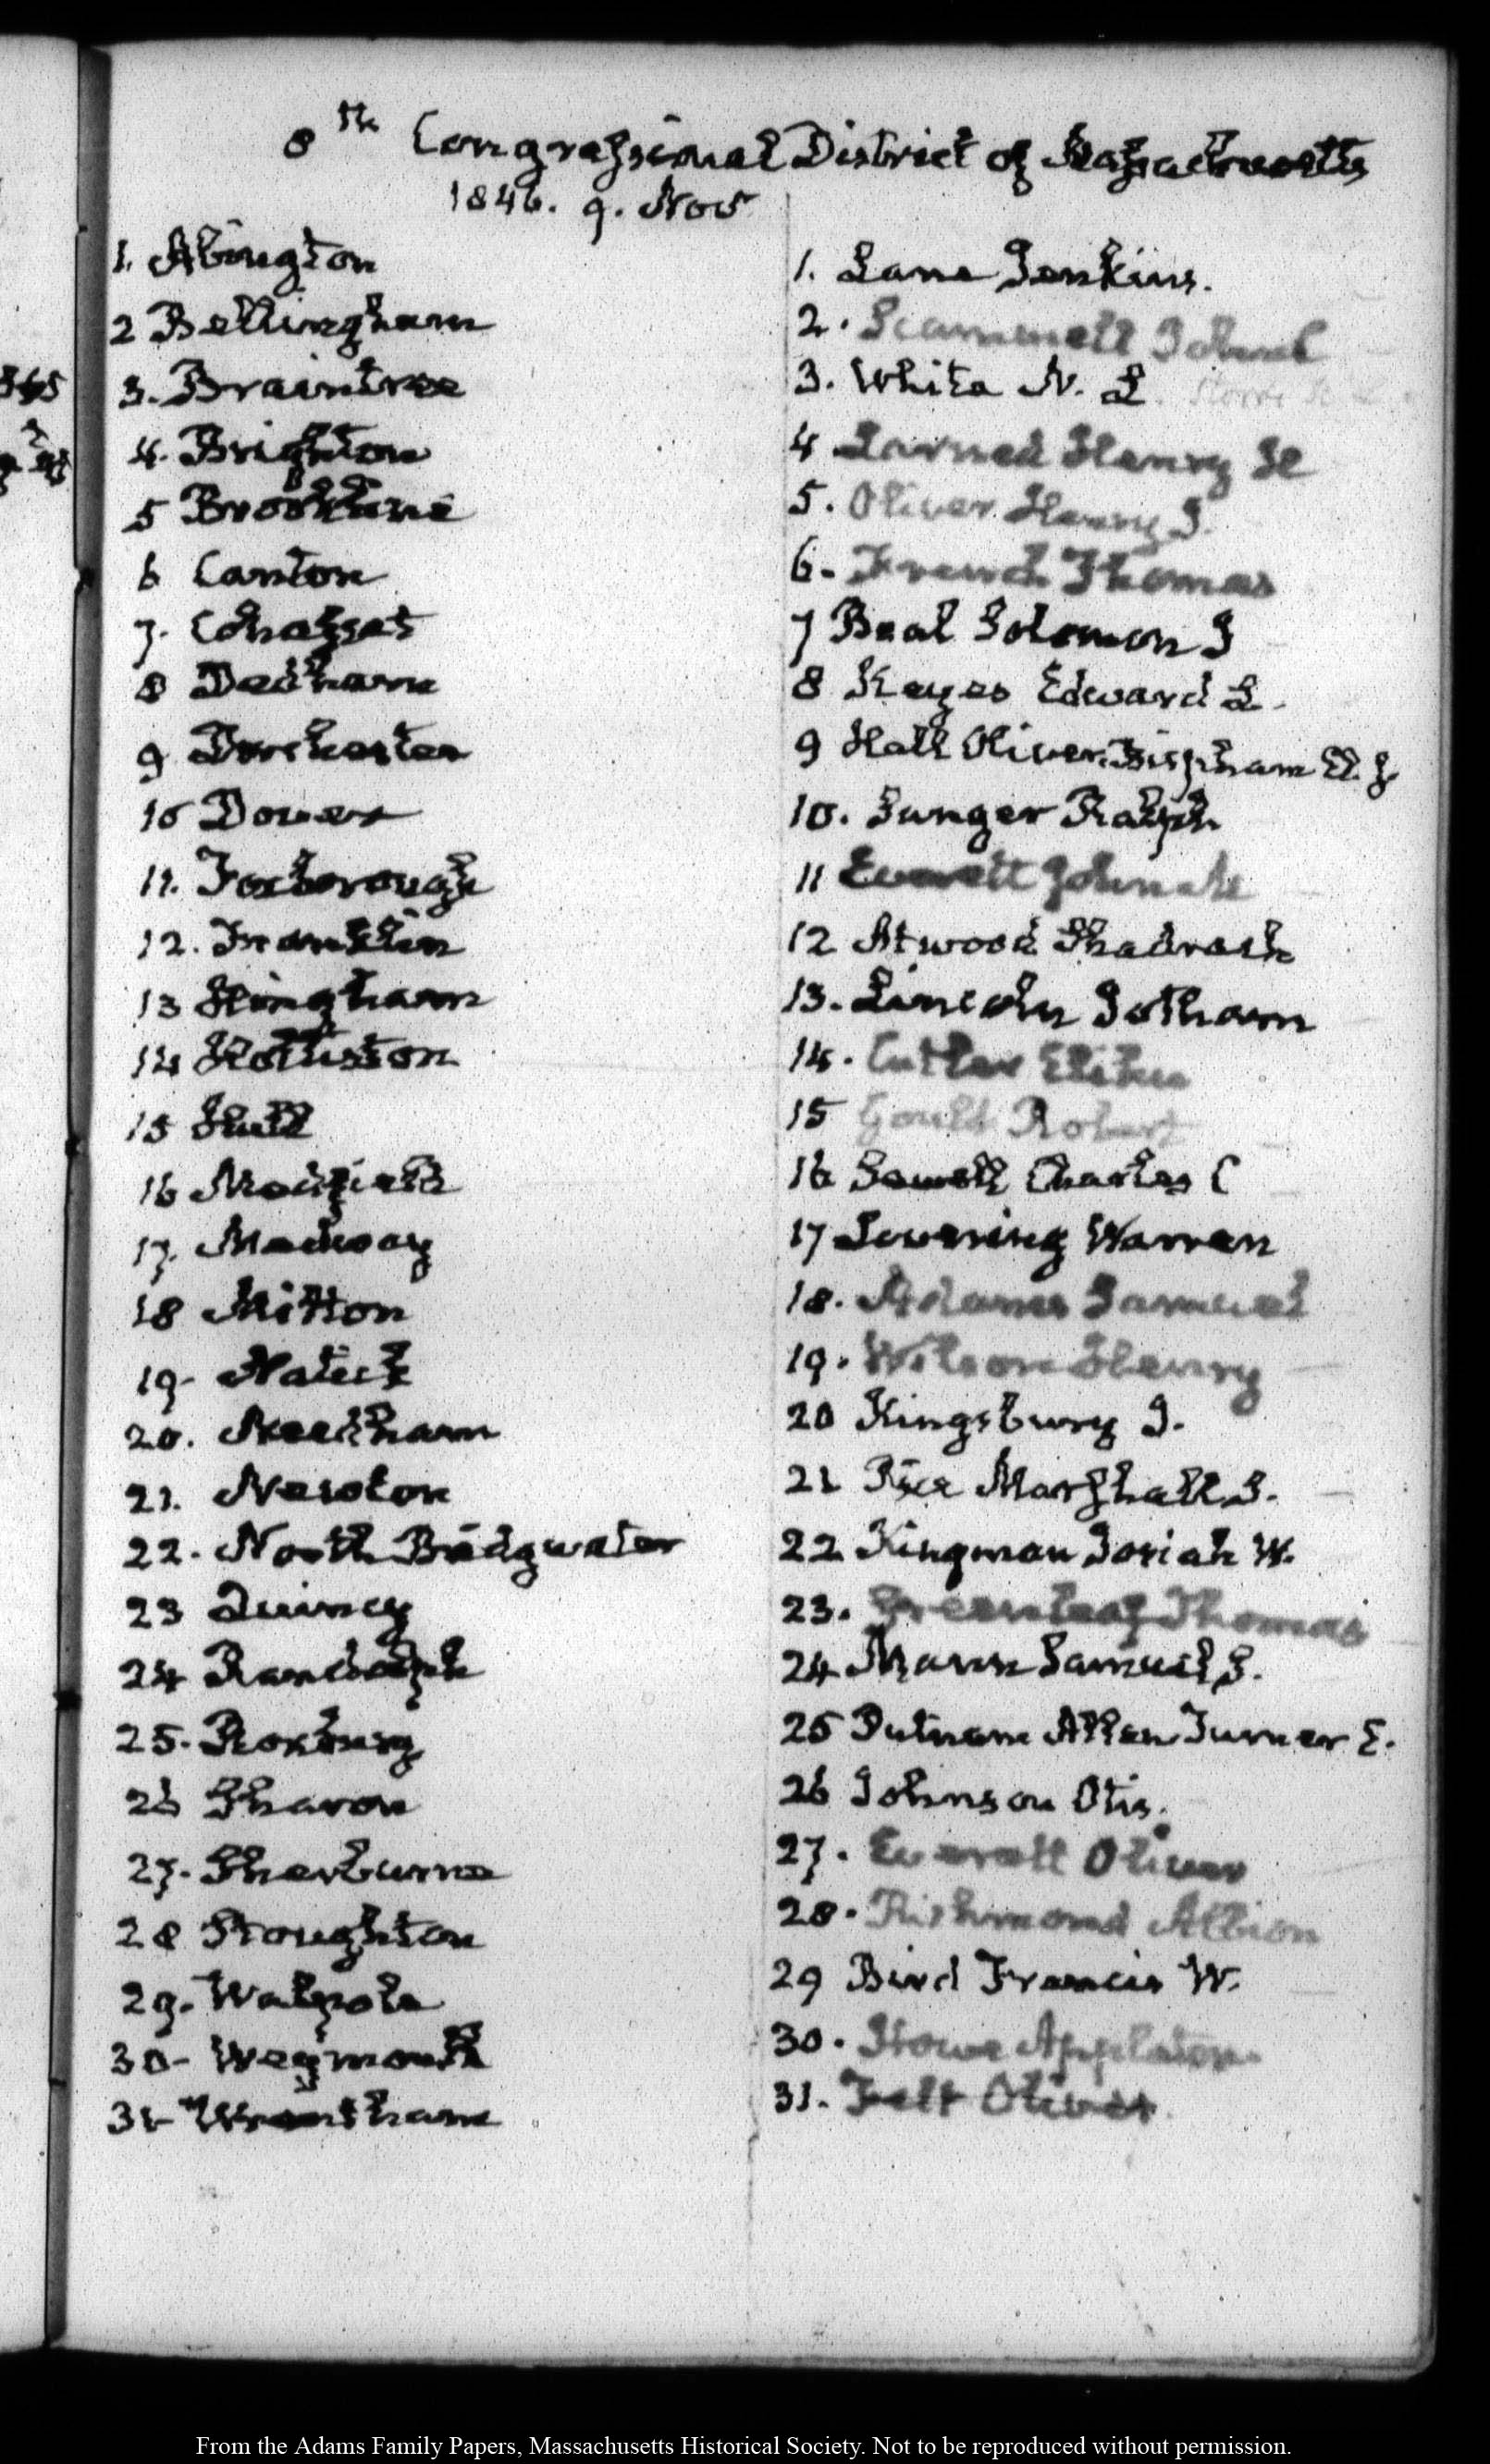 8th Congressional District of Massachusetts
1846. 9. Nov
1. Abington
2 Bellingham
3. Braintree
4. Brighton
5 Brookline
6 Canton
7. Cohasset
8 Dedham
9 Dorchester
10 Dover
11. Foxborough
12. Franklin
13 Hingham
14 Holliston
15 Hull
16 Medfield
17. Medway
18 Milton
19- Natick
20. Needham
21. Newton
22. North Bridgwater
23 Quincy
24 Randolph
25. Roxbury
26 Sharon
27. Sherburne
28 Stoughton
29. Walpole
30- Weymouth
31- Wrentham
1. Lane Jenkins.
2. Scammell
3. White N. L.
4 Larned Henry H
5. Oliver Henry J.
6. French Thomas
7 Beal Solomon J
8 Keyes Edward L.
9 Hall Oliver. Bispham E.
10. Sanger Ralph
11 Everett John
12 Atwood Shadrach
13. Lincoln Jotham
14. Cutler Elihu
15 Gould Robert
16 Sewall Charles C
17 Lovering Warren
18. Adams Samuel
19. Wilson Henry
20 Kingsbury J.
21 Rice Marshall S.
22 Kingman Josiah W.
23. Greenleaf Thomas
24 Mann Samuel J.
25 Putnam Allen Turner E.
26 Johnson Otis.
27. Everett Oliver
28. Richmond Albion
29 Bird Francis W.
30. Howe Appleton
31. Felt Oliver
From the Adams Family Papers, Massachusetts Historical Society. Not to be reproduced without permission.